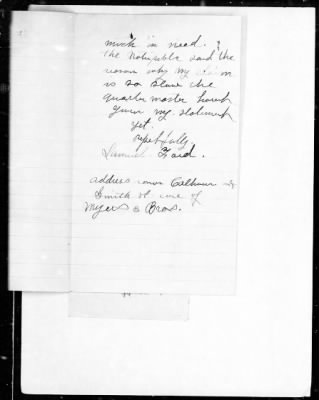 much in need.
the Notipubli said the
reason why my claim
is so slow the
quarter master havent
given my statement
yet.
respetfully
Samuel Ford.
address corner Calhoun &
Smith st care of
Myers & Bros.